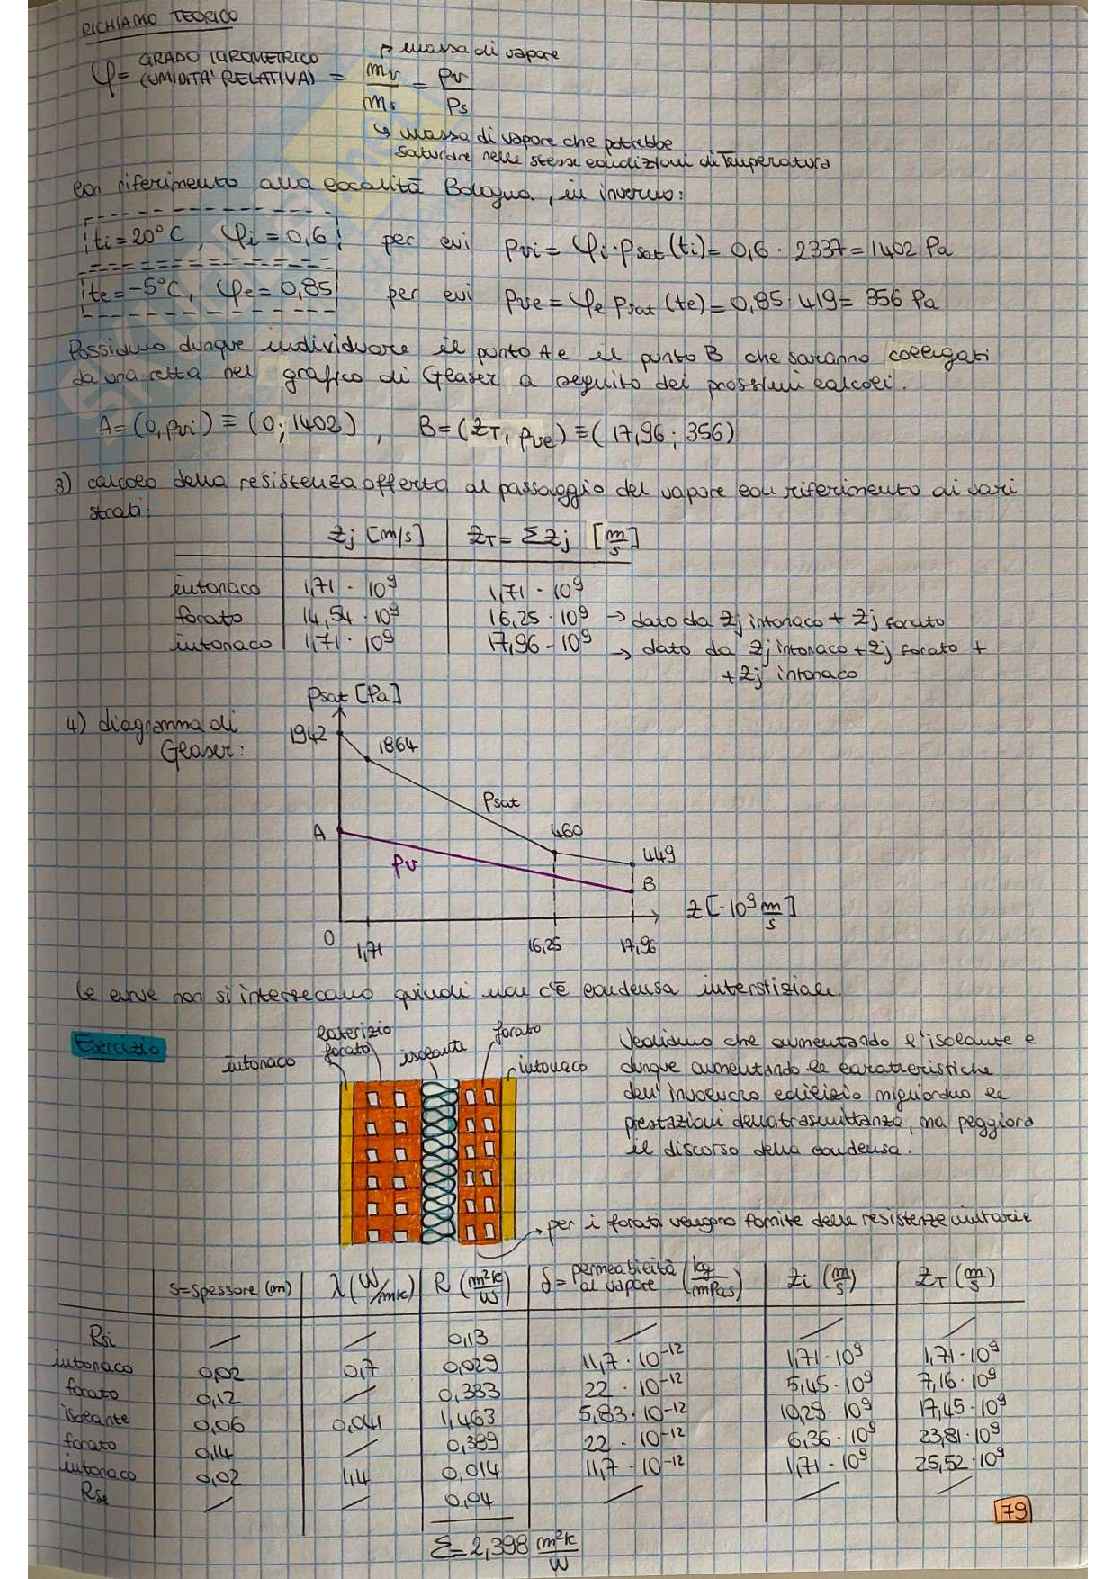 RICHIAMO TEORICO
φ = GRADO IGROMETRICO (UMIDITA' RELATIVA) = mv/ms = pv/ps
→ massa di vapore
↳ massa di vapore che potrebbe
saturare nelle stesse condizioni di Temperatura
con riferimento alla località Bologna, in inverno:
ti = 20°C, φi = 0,6 per cui pvi = φi·psat(ti) = 0,6 · 2337 = 1402 Pa
te = -5°C, φe = 0,85 per cui pve = φe psat(te) = 0,85·419 = 356 Pa
Possiamo dunque individuare il punto A e il punto B che saranno collegati
da una retta nel grafico di Glaser a seguito dei prossimi calcoli.
A = (0, pvi) ≡ (0; 1402), B = (ZT, pve) ≡ (17,96; 356)
3) calcolo della resistenza offerta al passaggio del vapore con riferimento ai vari
strati:
Zj [m/s] ZT = Σ Zj [m/s]
intonaco 1,71 · 10⁹ 1,71 · 10⁹
forato 14,54 · 10⁹ 16,25 · 10⁹ → dato da Zj intonaco + Zj forato
intonaco 1,71 · 10⁹ 17,96 · 10⁹ → dato da Zj intonaco + Zj forato +
+ Zj intonaco
4) diagramma di
Glaser:
psat [Pa]
1942
1864
Psat
A
460
449
pv
B
Z [·10⁹ m/s]
0
1,71
16,25
17,96
le curve non si intersecano quindi non c'è condensa interstiziale
Esercizio
intonaco
laterizio
forato
isolante
forato
intonaco
Vediamo che aumentando l'isolante e
dunque aumentando le caratteristiche
dell'involucro edilizio miglioriamo le
prestazioni della trasmittanza, ma peggiora
il discorso della condensa.
→ per i forati vengono fornite delle resistenze unitarie
s=spessore (m) λ (W/mK) R (m²K/W) δ = permeabilità al vapore (kg/mPas) Zi (m/s) ZT (m/s)
Rsi / / 0,13 / / /
intonaco 0,02 0,7 0,029 11,7 · 10⁻¹² 1,71 · 10⁹ 1,71 · 10⁹
forato 0,12 / 0,333 22 · 10⁻¹² 5,45 · 10⁹ 7,16 · 10⁹
isolante 0,06 0,041 1,463 5,83 · 10⁻¹² 10,29 · 10⁹ 17,45 · 10⁹
forato 0,14 / 0,389 22 · 10⁻¹² 6,36 · 10⁹ 23,81 · 10⁹
intonaco 0,02 1,4 0,014 11,7 · 10⁻¹² 1,71 · 10⁹ 25,52 · 10⁹
Rse / / 0,04 / / /
Σ = 2,398 m²K/W
79